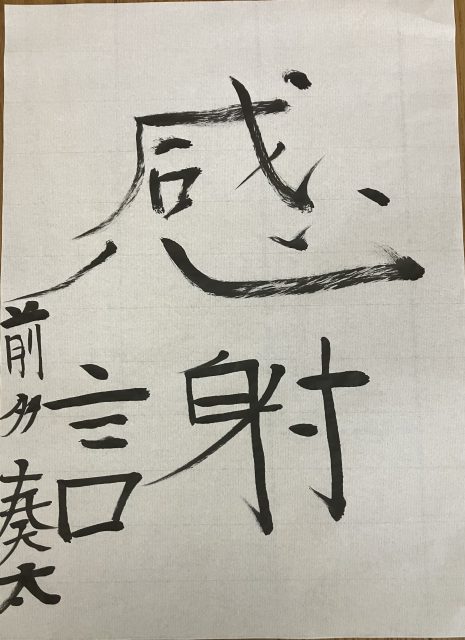 感謝
前多奏太